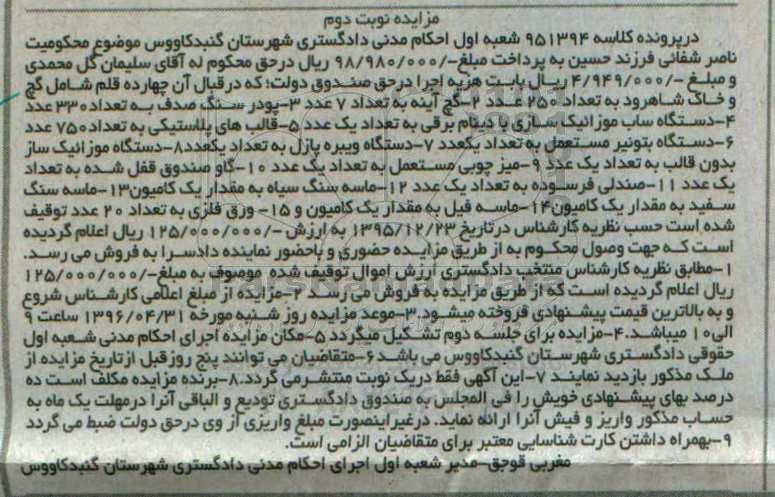 مزایده نوبت دوم
درپرونده کلاسه ۹۵۱۳۹۴ شعبه اول احکام مدنی دادگستری شهرستان گنبدکاووس موضوع محکومیت
ناصر شفائی فرزند حسین به پرداخت مبلغ-/۹۸/۹۸۰/۰۰۰ ریال درحق محکوم له آقای سلیمان گل محمدی
و مبلغ -/۴/۹۴۹/۰۰۰ ریال بابت هزینه اجرا درحق صندوق دولت؛ که درقبال آن چهارده قلم شامل گچ
و خاک شاهرود به تعداد ۲۵۰ عدد ۲-گچ آینه به تعداد ۷ عدد ۳-پودر سنگ صدف به تعداد ۳۳۰ عدد
۴-دستگاه ساب موزائیک سازی با دینام برقی به تعداد یک عدد ۵-قالب های پلاستیکی به تعداد۷۵۰ عدد
۶-دستگاه بتونیر مستعمل به تعداد یکعدد ۷-دستگاه ویبره پازل به تعداد یکعدد۸-دستگاه موزائیک ساز
بدون قالب به تعداد یک عدد ۹-میز چوبی مستعمل به تعداد یک عدد ۱۰-گاو صندوق قفل شده به تعداد
یک عدد ۱۱-صندلی فرسوده به تعداد یک عدد ۱۲-ماسه سنگ سیاه به مقدار یک کامیون۱۳-ماسه سنگ
سفید به مقدار یک کامیون۱۴-ماسه فیل به مقدار یک کامیون و ۱۵- ورق فلزی به تعداد ۲۰ عدد توقیف
شده است حسب نظریه کارشناس درتاریخ ۱۳۹۵/۱۲/۲۳ به ارزش -/۱۲۵/۰۰۰/۰۰۰ ریال اعلام گردیده
است که جهت وصول محکوم به از طریق مزایده حضوری و باحضور نماینده دادسرا به فروش می رسد.
۱-مطابق نظریه کارشناس منتخب دادگستری ارزش اموال توقیف شده موصوف به مبلغ-/۱۲۵/۰۰۰/۰۰۰
ریال اعلام گردیده است که از طریق مزایده به فروش می رسد ۲-مزایده از مبلغ اعلامی کارشناس شروع
و به بالاترین قیمت پیشنهادی فروخته میشود.۳-موعد مزایده روز شنبه مورخه ۱۳۹۶/۰۴/۳۱ ساعت ۹
الی۱۰ میباشد.۴-مزایده برای جلسه دوم تشکیل میگردد ۵-مکان مزایده اجرای احکام مدنی شعبه اول
حقوقی دادگستری شهرستان گنبدکاووس می باشد۶-متقاضیان می توانند پنج روز قبل از تاریخ مزایده از
ملک مذکور بازدید نمایند ۷-این آگهی فقط دریک نوبت منتشرمی گردد.۸-برنده مزایده مکلف است ده
درصد بهای پیشنهادی خویش را فی المجلس به صندوق دادگستری تودیع و الباقی آنرا درمهلت یک ماه به
حساب مذکور واریز و فیش آنرا ارائه نماید. درغیراینصورت مبلغ واریزی از وی درحق دولت ضبط می گردد
۹-بهمراه داشتن کارت شناسایی معتبر برای متقاضیان الزامی است.
مغربی قوجق-مدیر شعبه اول اجرای احکام مدنی دادگستری شهرستان گنبدکاووس